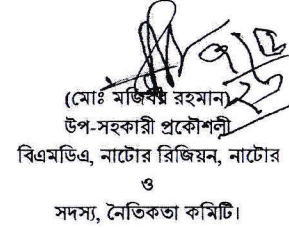 (মোঃ মজিবর রহমান)
উপ-সহকারী প্রকৌশলী
বিএমডিএ, নাটোর রিজিয়ন, নাটোর
ও
সদস্য, নৈতিকতা কমিটি।